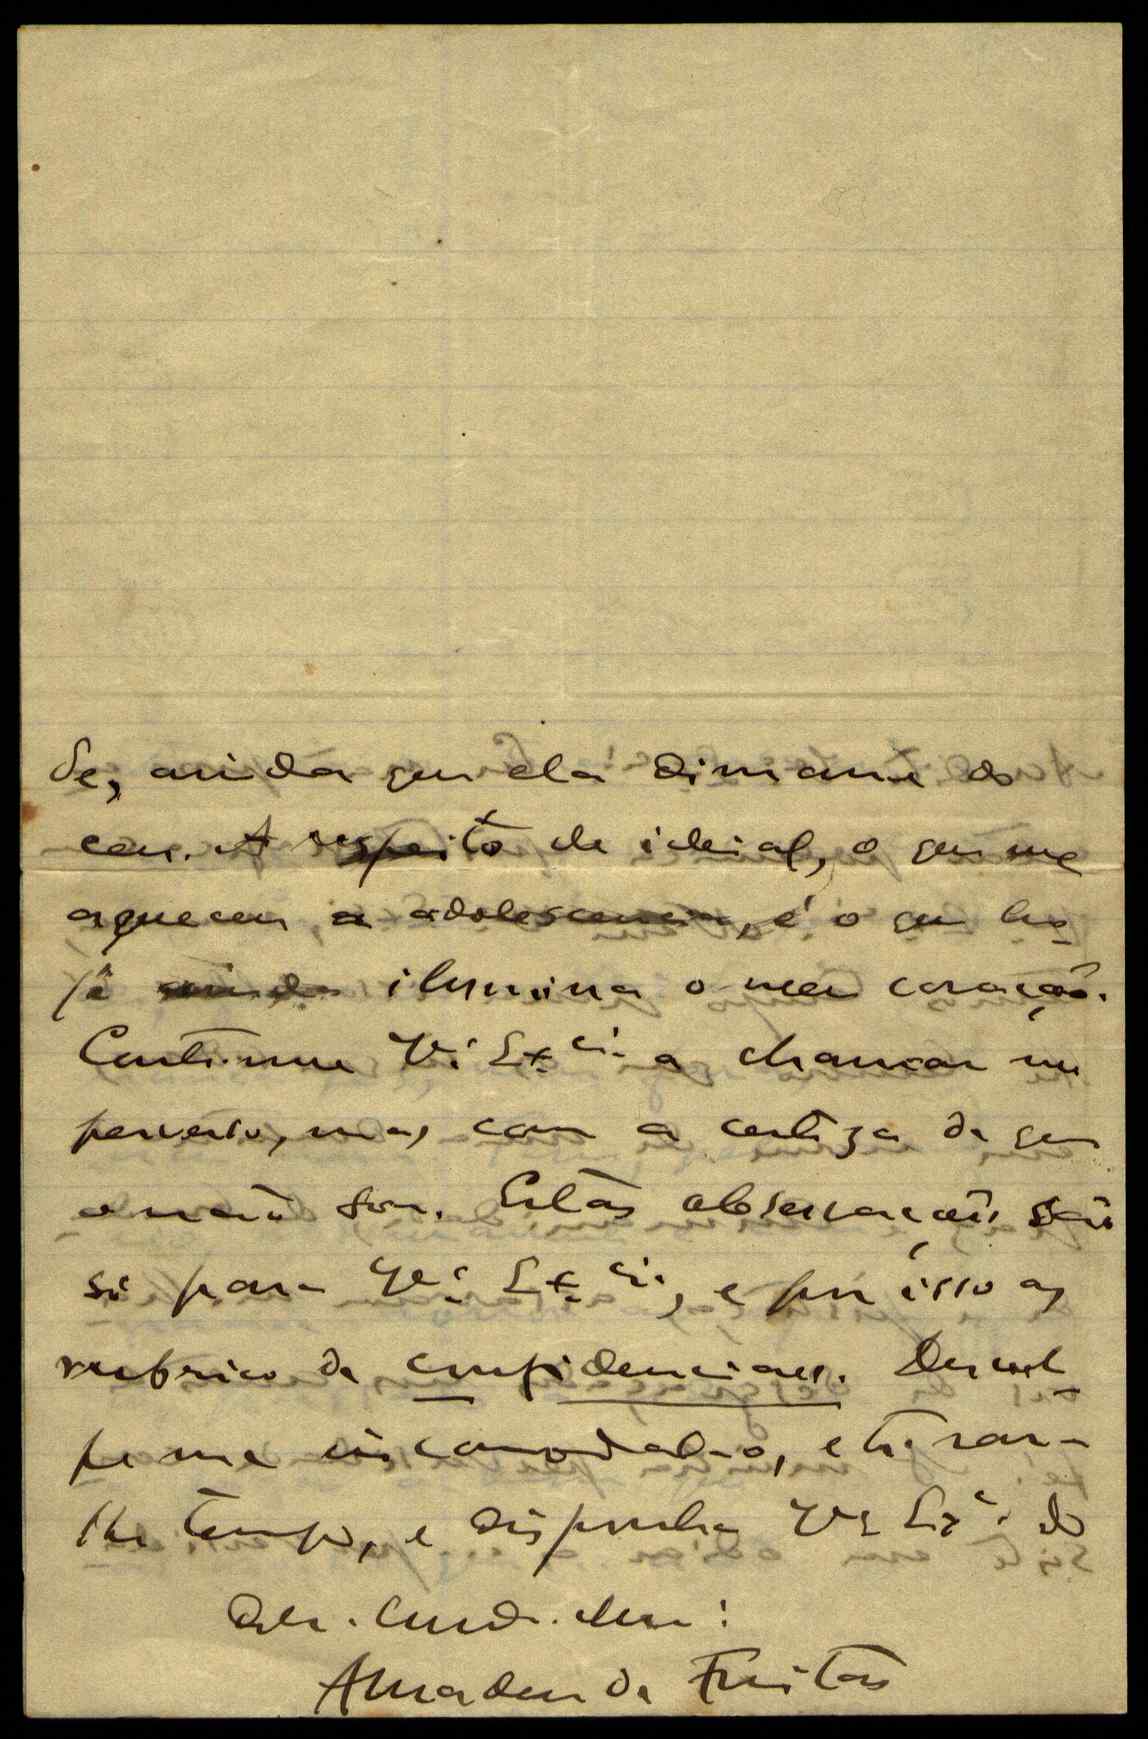 de, ainda que ela dimane do
ceu. A respeito de ideial, o que me
aqueceu a adolescencia, é o que ho-
je ainda ilumina o meu coração.
Continue V.ª Ex.cia a chamar me
perverso, mas com a certeza de que
o não sou. Estas observações são
só para V.ª Ex.cia, e por isso as
rubrico de confidenciaes. Descul-
pe me incomodal-o, e tirar-
lhe tempo, e disponha V.ª Ex.ª do
Amadeu de Freitas